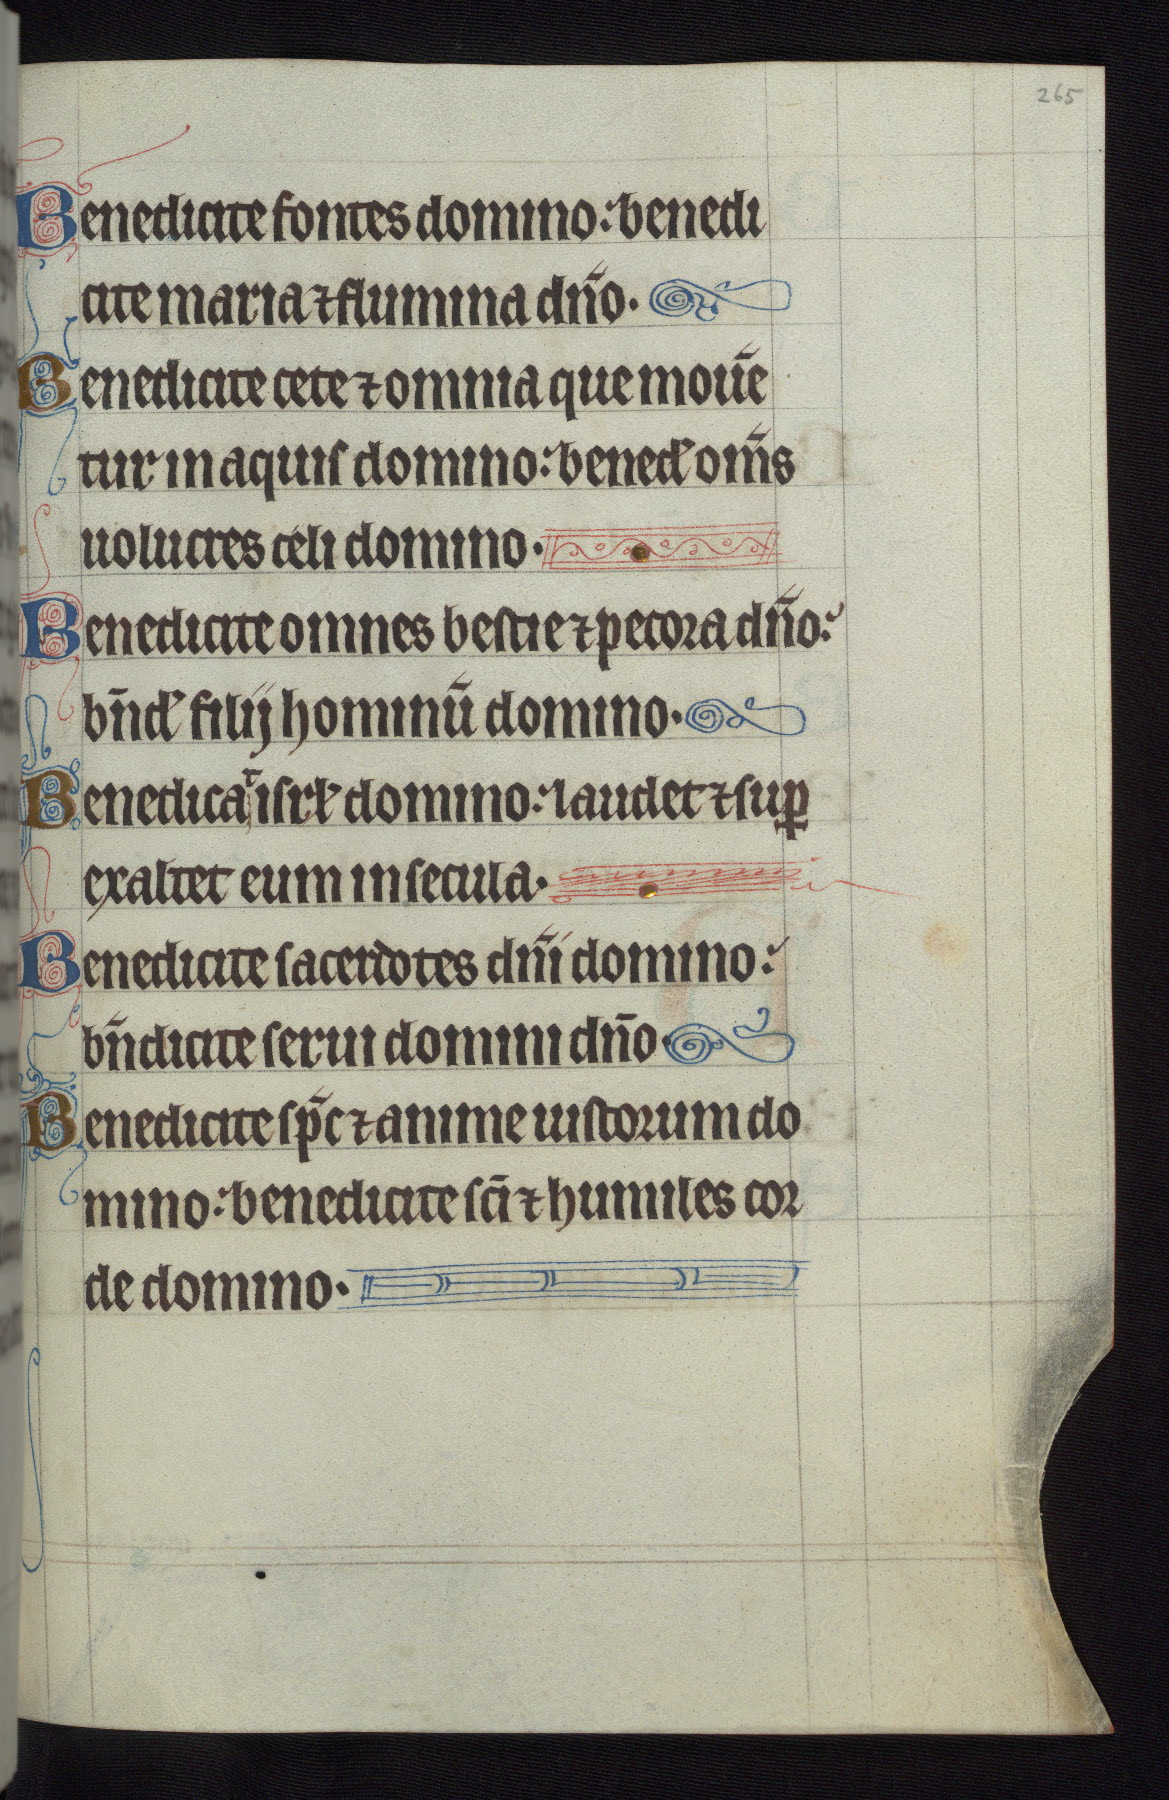 265
Benedicite fontes domino: benedi
cite maria ⁊ flumina dn̄o.
Benedicite cete ⁊ omnia que mouē
tur in aquis domino: bened̉ om̄s
uolucres celi domino.
Benedicite omnes bestie ⁊ pecora dn̄o:
bn̄d̉ filij hominū domino.
Benedicat isrl̉ domino: laudet ⁊ suꝑ
exaltet eum in secula.
Benedicite sacerdotes dn̄i domino:
bn̄dicite serui domini dn̄o.
Benedicite sp̄c ⁊ anime iustorum do
mino: benedicite sc̄i ⁊ humiles cor
de domino.